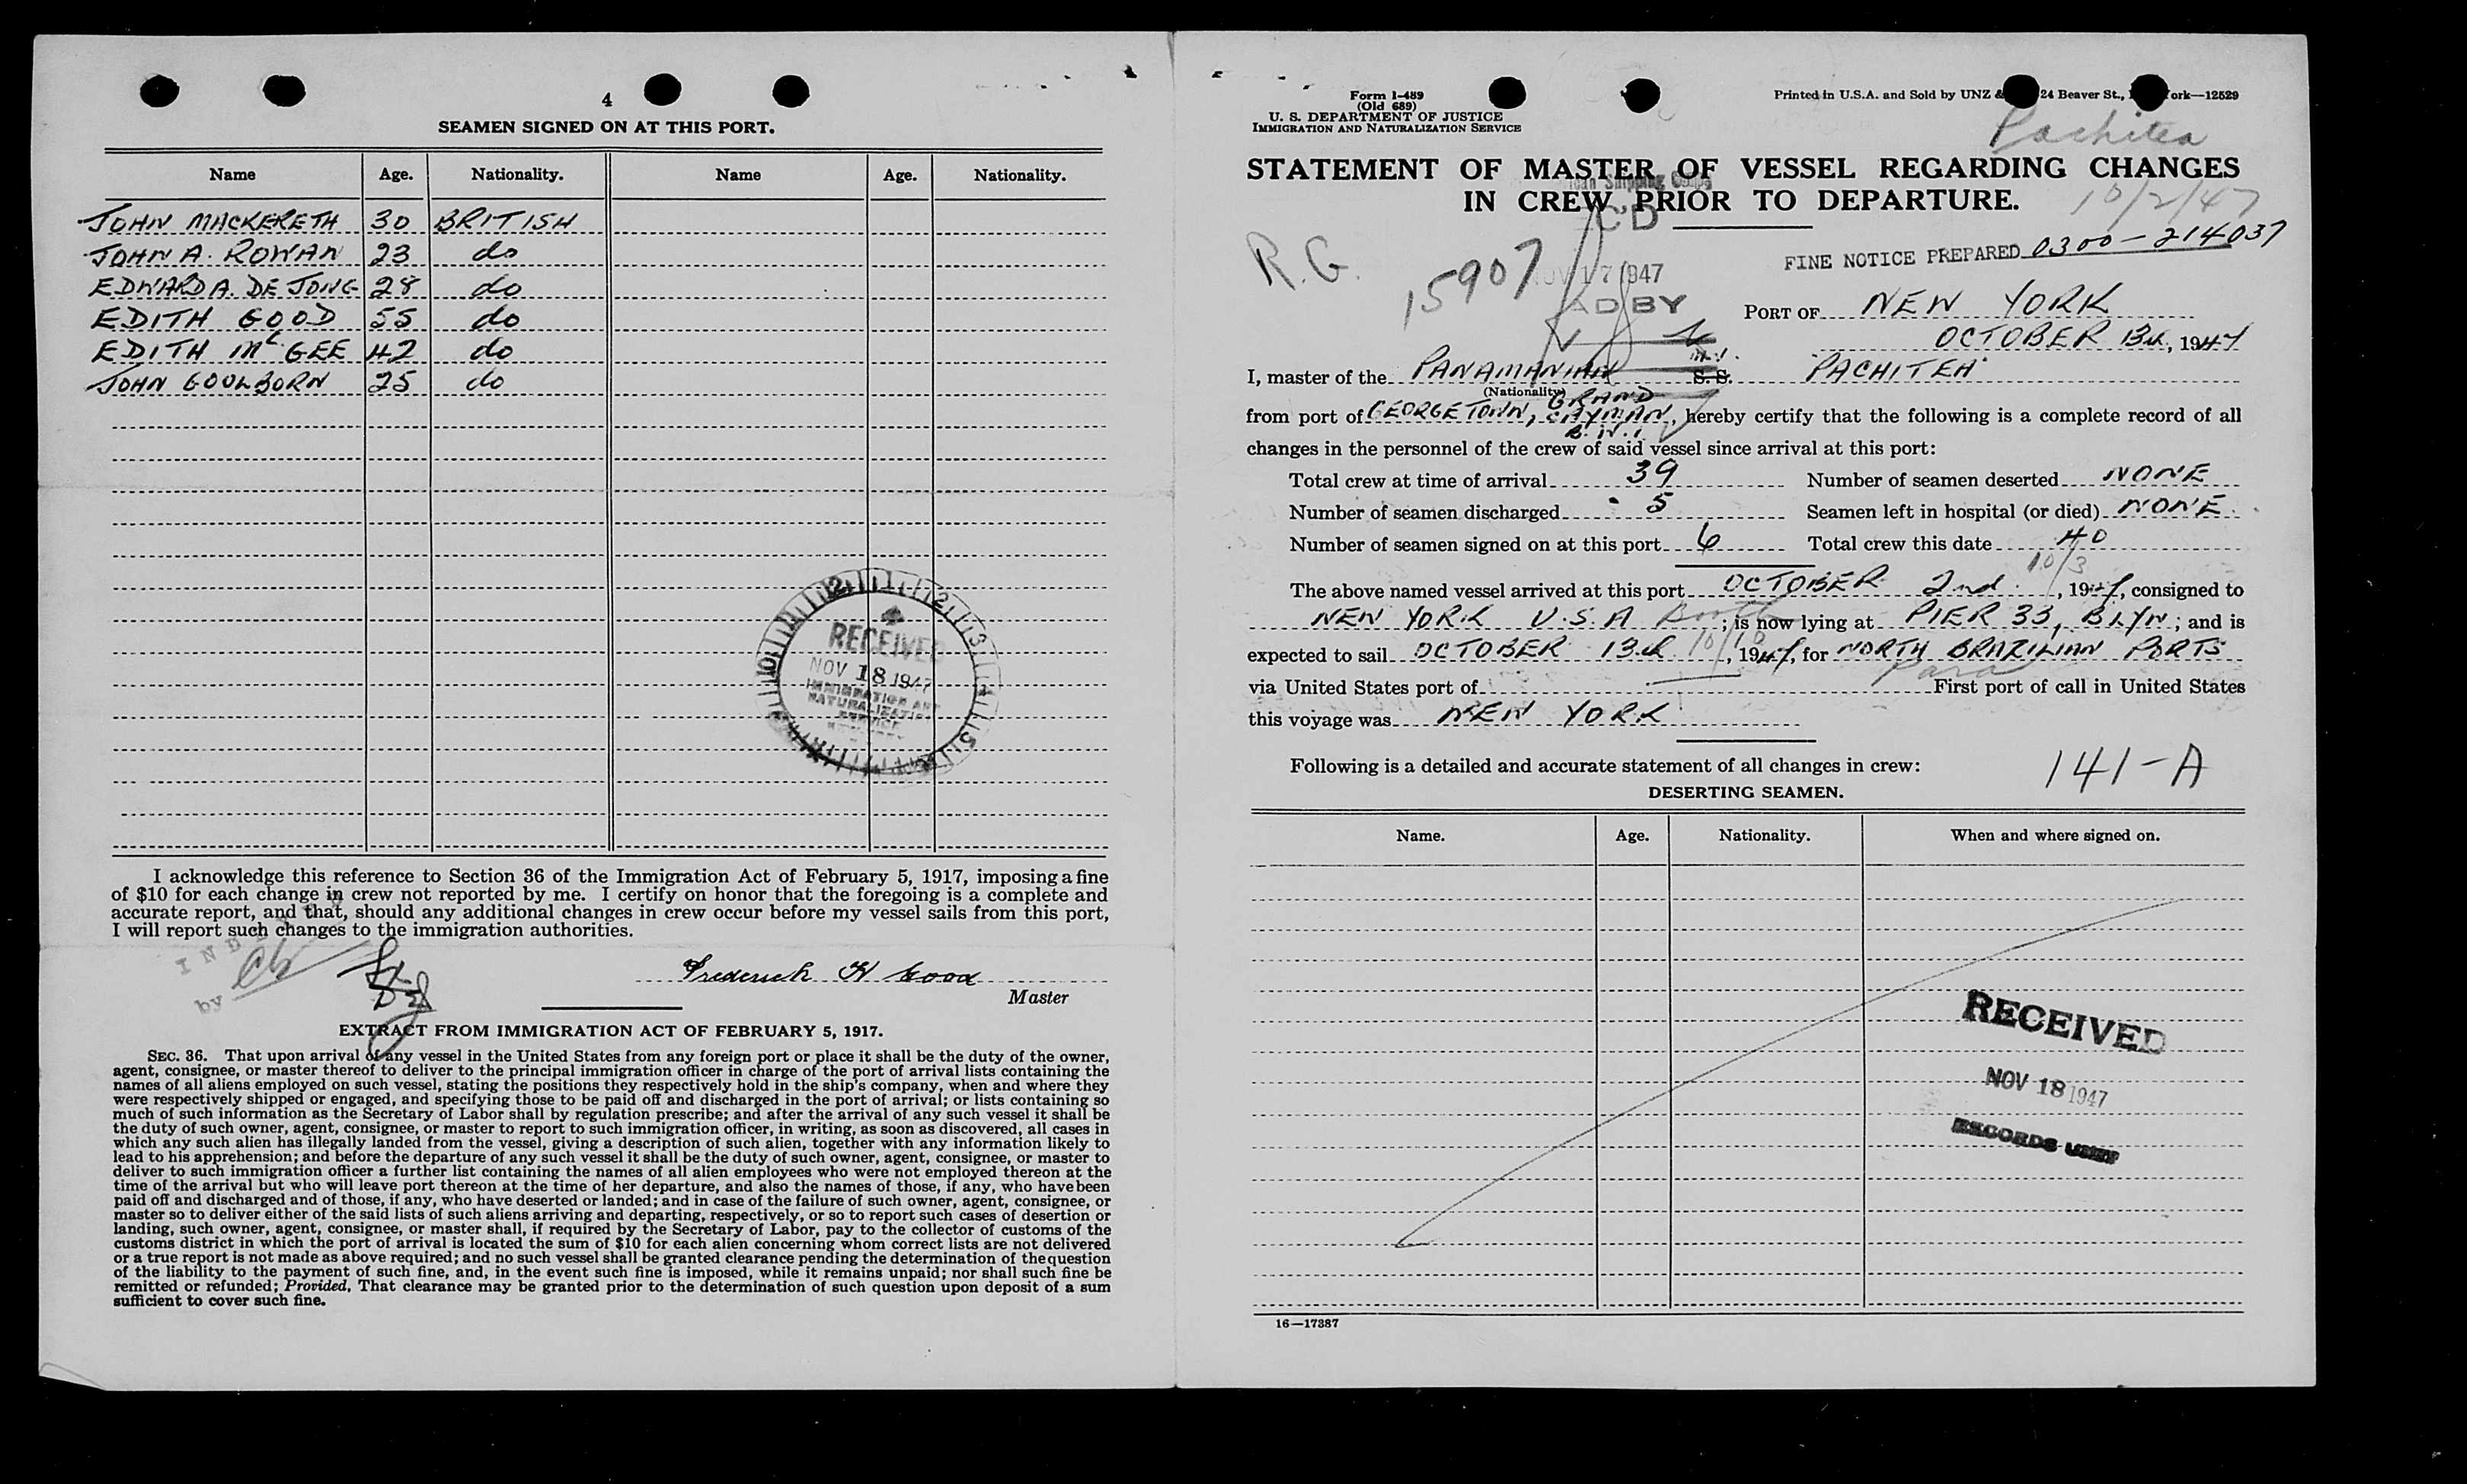 4
SEAMEN SIGNED ON AT THIS PORT.
Name Age. Nationality. Name Age. Nationality.
JOHN MACKERETH 30 BRITISH
JOHN A. ROWAN 23 do
EDWARD A. DE JONG 28 do
EDITH GOOD 55 do
EDITH McGEE 42 do
JOHN GOULBORN 25 do
RECEIVED
NOV 18 1947
IMMIGRATION AND
NATURALIZATION
SERVICE
I acknowledge this reference to Section 36 of the Immigration Act of February 5, 1917, imposing a fine
of $10 for each change in crew not reported by me. I certify on honor that the foregoing is a complete and
accurate report, and that, should any additional changes in crew occur before my vessel sails from this port,
I will report such changes to the immigration authorities.
by
Frederick W Good
Master
EXTRACT FROM IMMIGRATION ACT OF FEBRUARY 5, 1917.
SEC. 36. That upon arrival of any vessel in the United States from any foreign port or place it shall be the duty of the owner,
agent, consignee, or master thereof to deliver to the principal immigration officer in charge of the port of arrival lists containing the
names of all aliens employed on such vessel, stating the positions they respectively hold in the ship's company, when and where they
were respectively shipped or engaged, and specifying those to be paid off and discharged in the port of arrival; or lists containing so
much of such information as the Secretary of Labor shall by regulation prescribe; and after the arrival of any such vessel it shall be
the duty of such owner, agent, consignee, or master to report to such immigration officer, in writing, as soon as discovered, all cases in
which any such alien has illegally landed from the vessel, giving a description of such alien, together with any information likely to
lead to his apprehension; and before the departure of any such vessel it shall be the duty of such owner, agent, consignee, or master to
deliver to such immigration officer a further list containing the names of all alien employees who were not employed thereon at the
time of the arrival but who will leave port thereon at the time of her departure, and also the names of those, if any, who have been
paid off and discharged and of those, if any, who have deserted or landed; and in case of the failure of such owner, agent, consignee, or
master so to deliver either of the said lists of such aliens arriving and departing, respectively, or so to report such cases of desertion or
landing, such owner, agent, consignee, or master shall, if required by the Secretary of Labor, pay to the collector of customs of the
customs district in which the port of arrival is located the sum of $10 for each alien concerning whom correct lists are not delivered
or a true report is not made as above required; and no such vessel shall be granted clearance pending the determination of the question
of the liability to the payment of such fine, and, in the event such fine is imposed, while it remains unpaid; nor shall such fine be
remitted or refunded; Provided, That clearance may be granted prior to the determination of such question upon deposit of a sum
sufficient to cover such fine.
Form I-489
(Old 689)
U. S. DEPARTMENT OF JUSTICE
IMMIGRATION AND NATURALIZATION SERVICE
Printed in U.S.A. and Sold by UNZ & 24 Beaver St., ork—12529
Pachitea
STATEMENT OF MASTER OF VESSEL REGARDING CHANGES
IN CREW PRIOR TO DEPARTURE.
10/2/47
R.G. 15907
NOV 17 1947
FINE NOTICE PREPARED 0300-214037
PORT OF NEW YORK
OCTOBER 13th, 1947
I, master of the PANAMANIAN S. S. M.V. "PACHITEA"
(Nationality)
from port of GEORGETOWN, GRAND CAYMAN, B.W.I., hereby certify that the following is a complete record of all
changes in the personnel of the crew of said vessel since arrival at this port:
Total crew at time of arrival 39 Number of seamen deserted NONE
Number of seamen discharged 5 Seamen left in hospital (or died) NONE
Number of seamen signed on at this port 6 Total crew this date 40
10/3
The above named vessel arrived at this port OCTOBER 2nd, 1947, consigned to
NEW YORK U.S.A Booth; is now lying at PIER 33, BKYN; and is
expected to sail OCTOBER 13th, 1947, for NORTH BRAZILIAN PORTS
Para
via United States port of First port of call in United States
this voyage was NEW YORK
Following is a detailed and accurate statement of all changes in crew:
141-A
DESERTING SEAMEN.
Name. Age. Nationality. When and where signed on.
RECEIVED
NOV 18 1947
RECORDS UNIT
16—17387